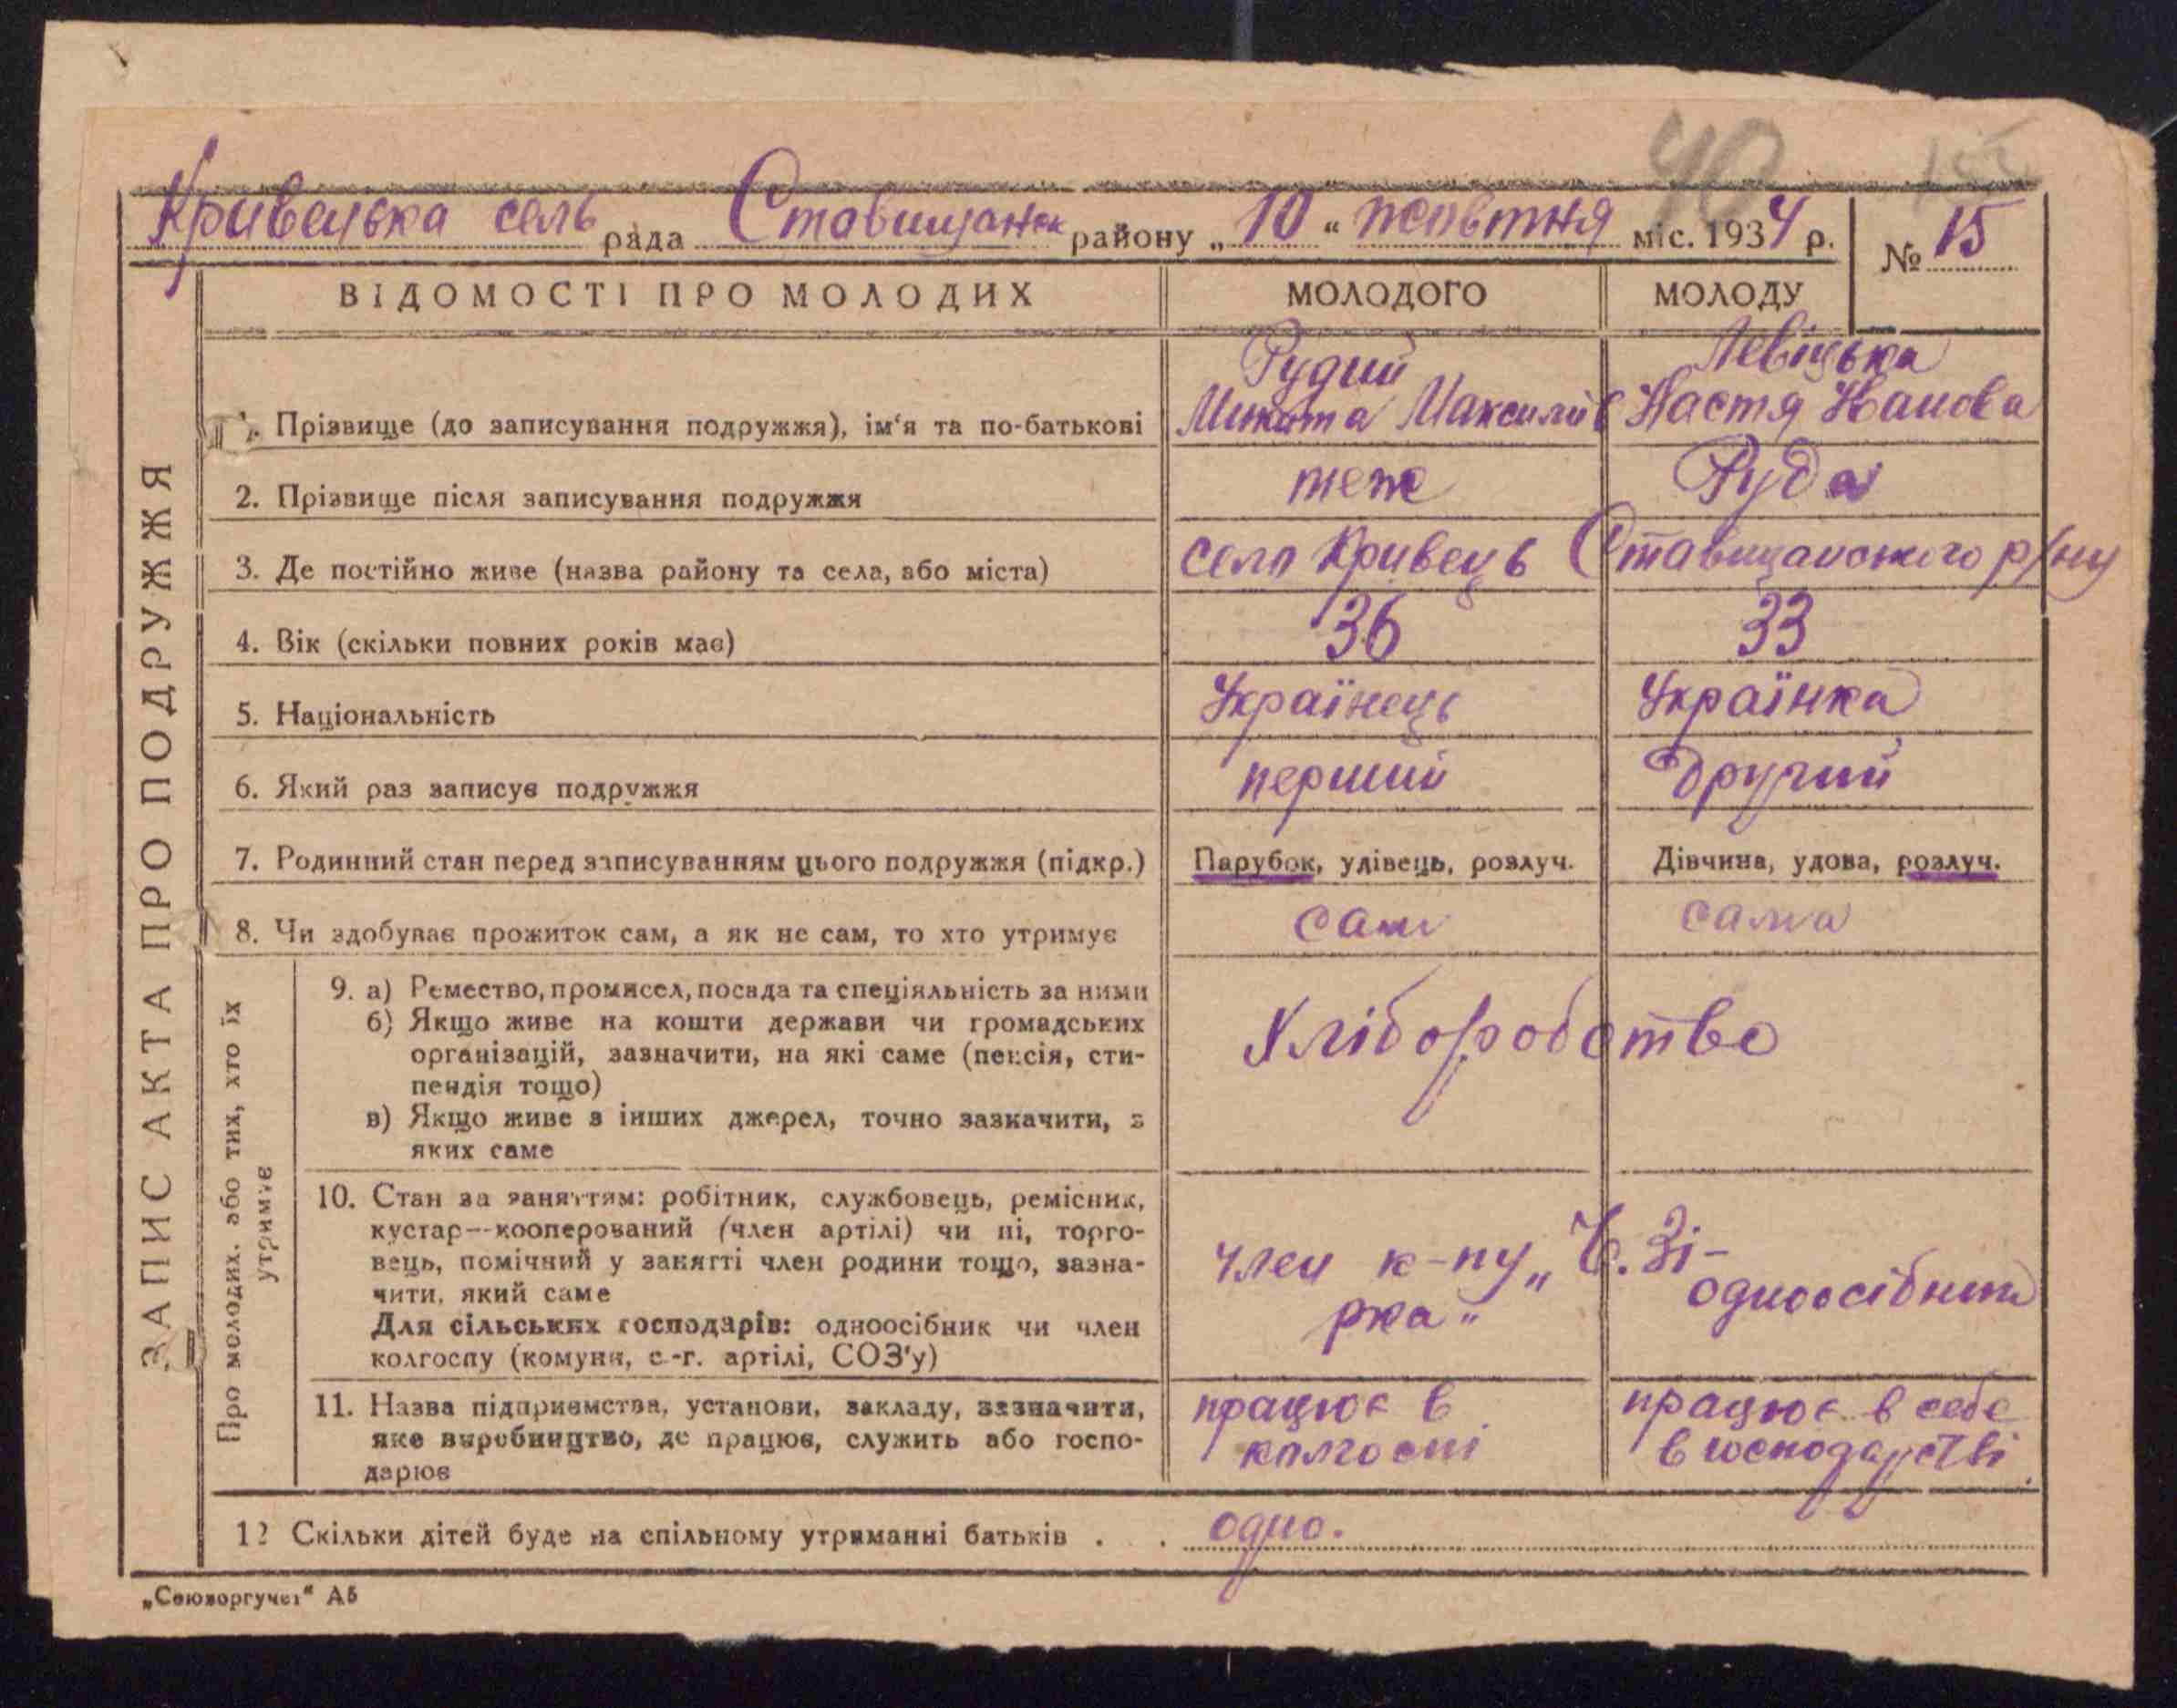 40
Кривецька сель рада Ставищанськ району „10“ жовтня міс. 1934 р. № 15
ВІДОМОСТІ ПРО МОЛОДИХ МОЛОДОГО МОЛОДУ
Рудий Левіцька
1. Прізвище (до записування подружжя), ім'я та по-батькові Микита Максимів Настя Іванова
2. Прізвище після записування подружжя теж Руда
3. Де постійно живе (назва району та села, або міста) село Кривець Ставищанського р/ну
4. Вік (скільки повних років має) 36 33
5. Національність Українець Українка
6. Який раз записує подружжя перший Другий
7. Родинний стан перед записуванням цього подружжя (підкр.) Парубок, удівець, розлуч. Дівчина, удова, розлуч.
8. Чи здобуває прожиток сам, а як не сам, то хто утримує сам сама
9. а) Ремество, промисел, посада та спеціяльність за ними
б) Якщо живе на кошти держави чи громадських
організацій, зазначити, на які саме (пенсія, сти-
пендія тощо)
Хліборобство
в) Якщо живе з інших джерел, точно зазначити, з
яких саме
10. Стан за заняттям: робітник, службовець, ремісник,
кустар--кооперований (член артілі) чи ні, торго-
вець, помічний у занятті член родини тощо, зазна-
чити, який саме
Для сільських господарів: одноосібник чи член
колгоспу (комуни, с.-г. артілі, СОЗ'у)
член к-пу „Ч. Зі-
рка“
одноосібниця
11. Назва підприємства, установи, закладу, зазначити,
яке виробництво, де працює, служить або госпо-
дарює
працює в
колгоспі
працює в себе
в господарстві
12 Скільки дітей буде на спільному утриманні батьків . . одно.
ЗАПИС АКТА ПРО ПОДРУЖЖЯ
Про молодих, або тих, хто їх
утримує
„Союзоргучет“ А5